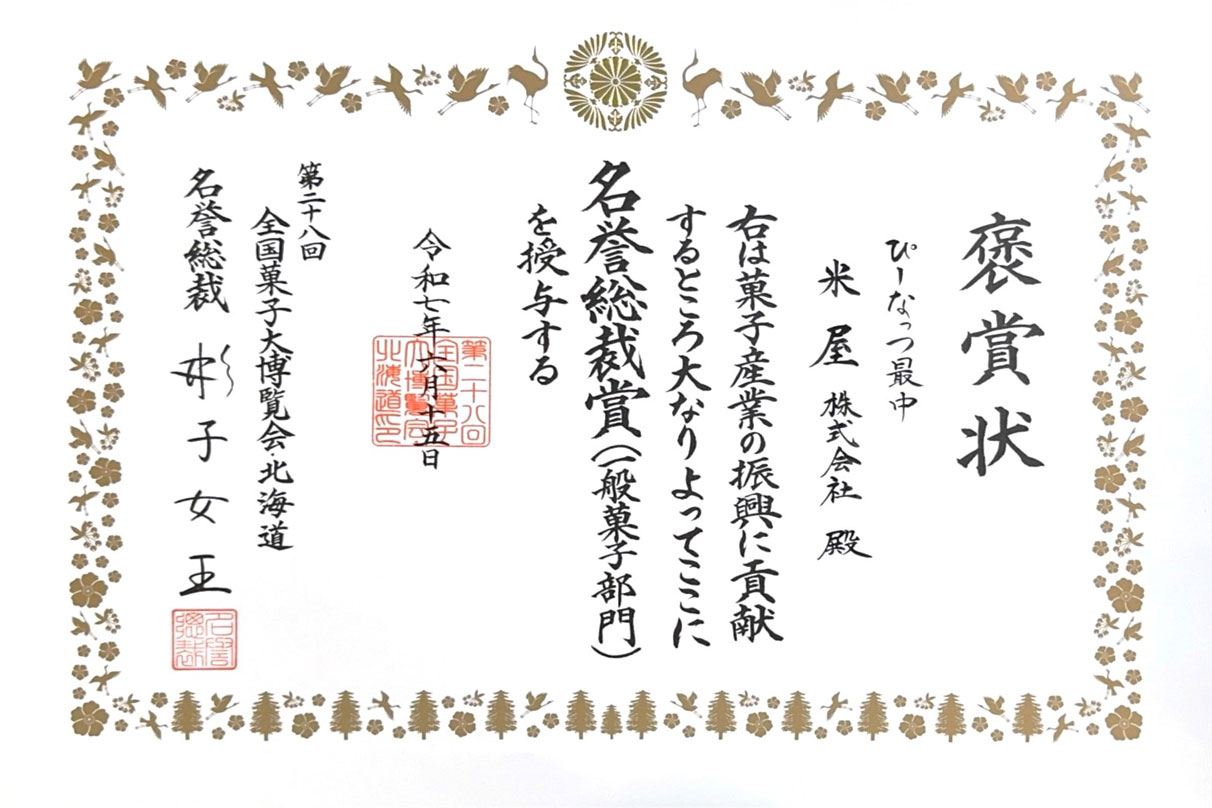 褒賞状
ぴーなっつ最中
米屋株式会社 殿
右は菓子産業の振興に貢献
するところ大なりよってここに
名誉総裁賞(一般菓子部門)
を授与する
令和七年六月十五日
第二十八回
全国菓子
大博覧会
北海道印
第二十八回
全国菓子大博覧会・北海道
名誉総裁 彬子女王
名誉
総裁